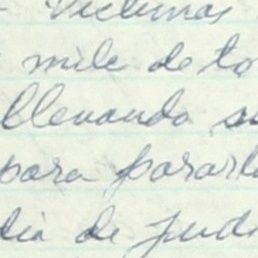 Victimas
mile de to
llevando su
para pararla
dia de judi